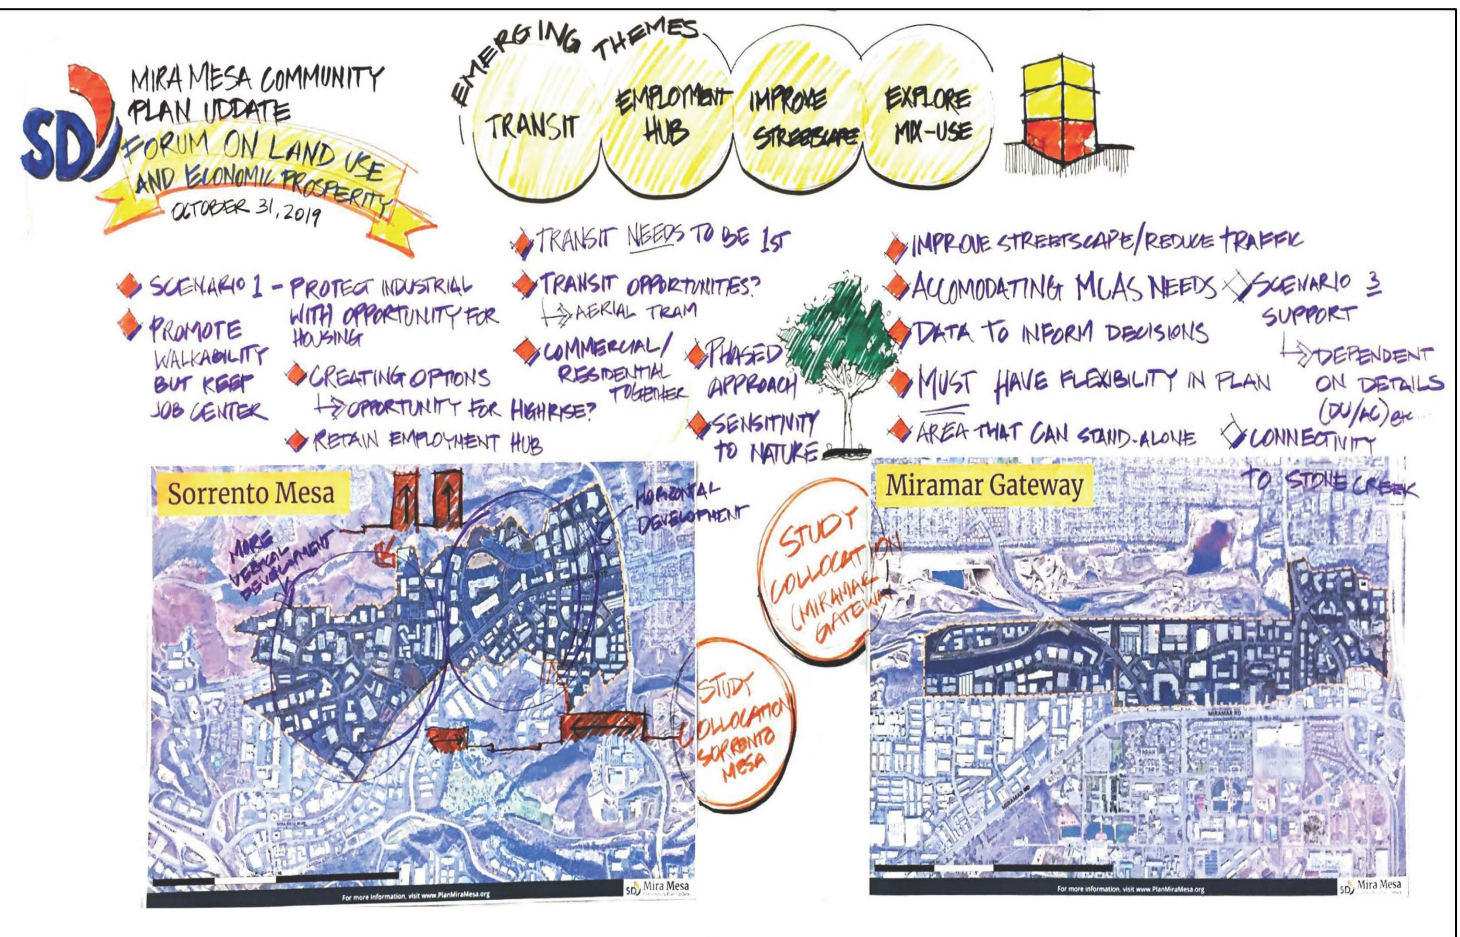 SD
MIRA MESA COMMUNITY
PLAN UDDATE
FORUM ON LAND USE
AND ECONOMIC PROSPERITY
OCTOBER 31, 2019
EMERGING THEMES
TRANSIT
EMPLOYMENT
HUB
IMPROVE
STREETSCAPE
EXPLORE
MIX-USE
SCENARIO 1 - PROTECT INDUSTRIAL
WITH OPPORTUNITY FOR
HOUSING
PROMOTE
WALKABILITY
BUT KEEP
JOB CENTER
CREATING OPTIONS
OPPORTUNITY FOR HIGHRISE?
RETAIN EMPLOYMENT HUB
TRANSIT NEEDS TO BE 1ST
TRANSIT OPPORTUNITIES?
AERIAL TRAM
COMMERCIAL/
RESIDENTIAL
TOGETHER
PHASED
APPROACH
SENSITIVITY
TO NATURE
IMPROVE STREETSCAPE/REDUCE TRAFFIC
ACCOMODATING MCAS NEEDS
DATA TO INFORM DECISIONS
MUST HAVE FLEXIBILITY IN PLAN
AREA THAT CAN STAND-ALONE
SCENARIO 3
SUPPORT
DEPENDENT
ON DETAILS
(DU/AC) etc...
CONNECTIVITY
TO STONE CREEK
Sorrento Mesa
MORE
VERTICAL
DEVELOPMENT
HORIZONTAL
DEVELOPMENT
For more information, visit www.PlanMiraMesa.org
SD Mira Mesa
STUDY
COLLOCATION
(MIRAMAR
GATEWAY
STUDY
COLLOCATION
SORRENTO
MESA
Miramar Gateway
MIRAMAR RD
MIRAMAR RD
For more information, visit www.PlanMiraMesa.org
SD Mira Mesa